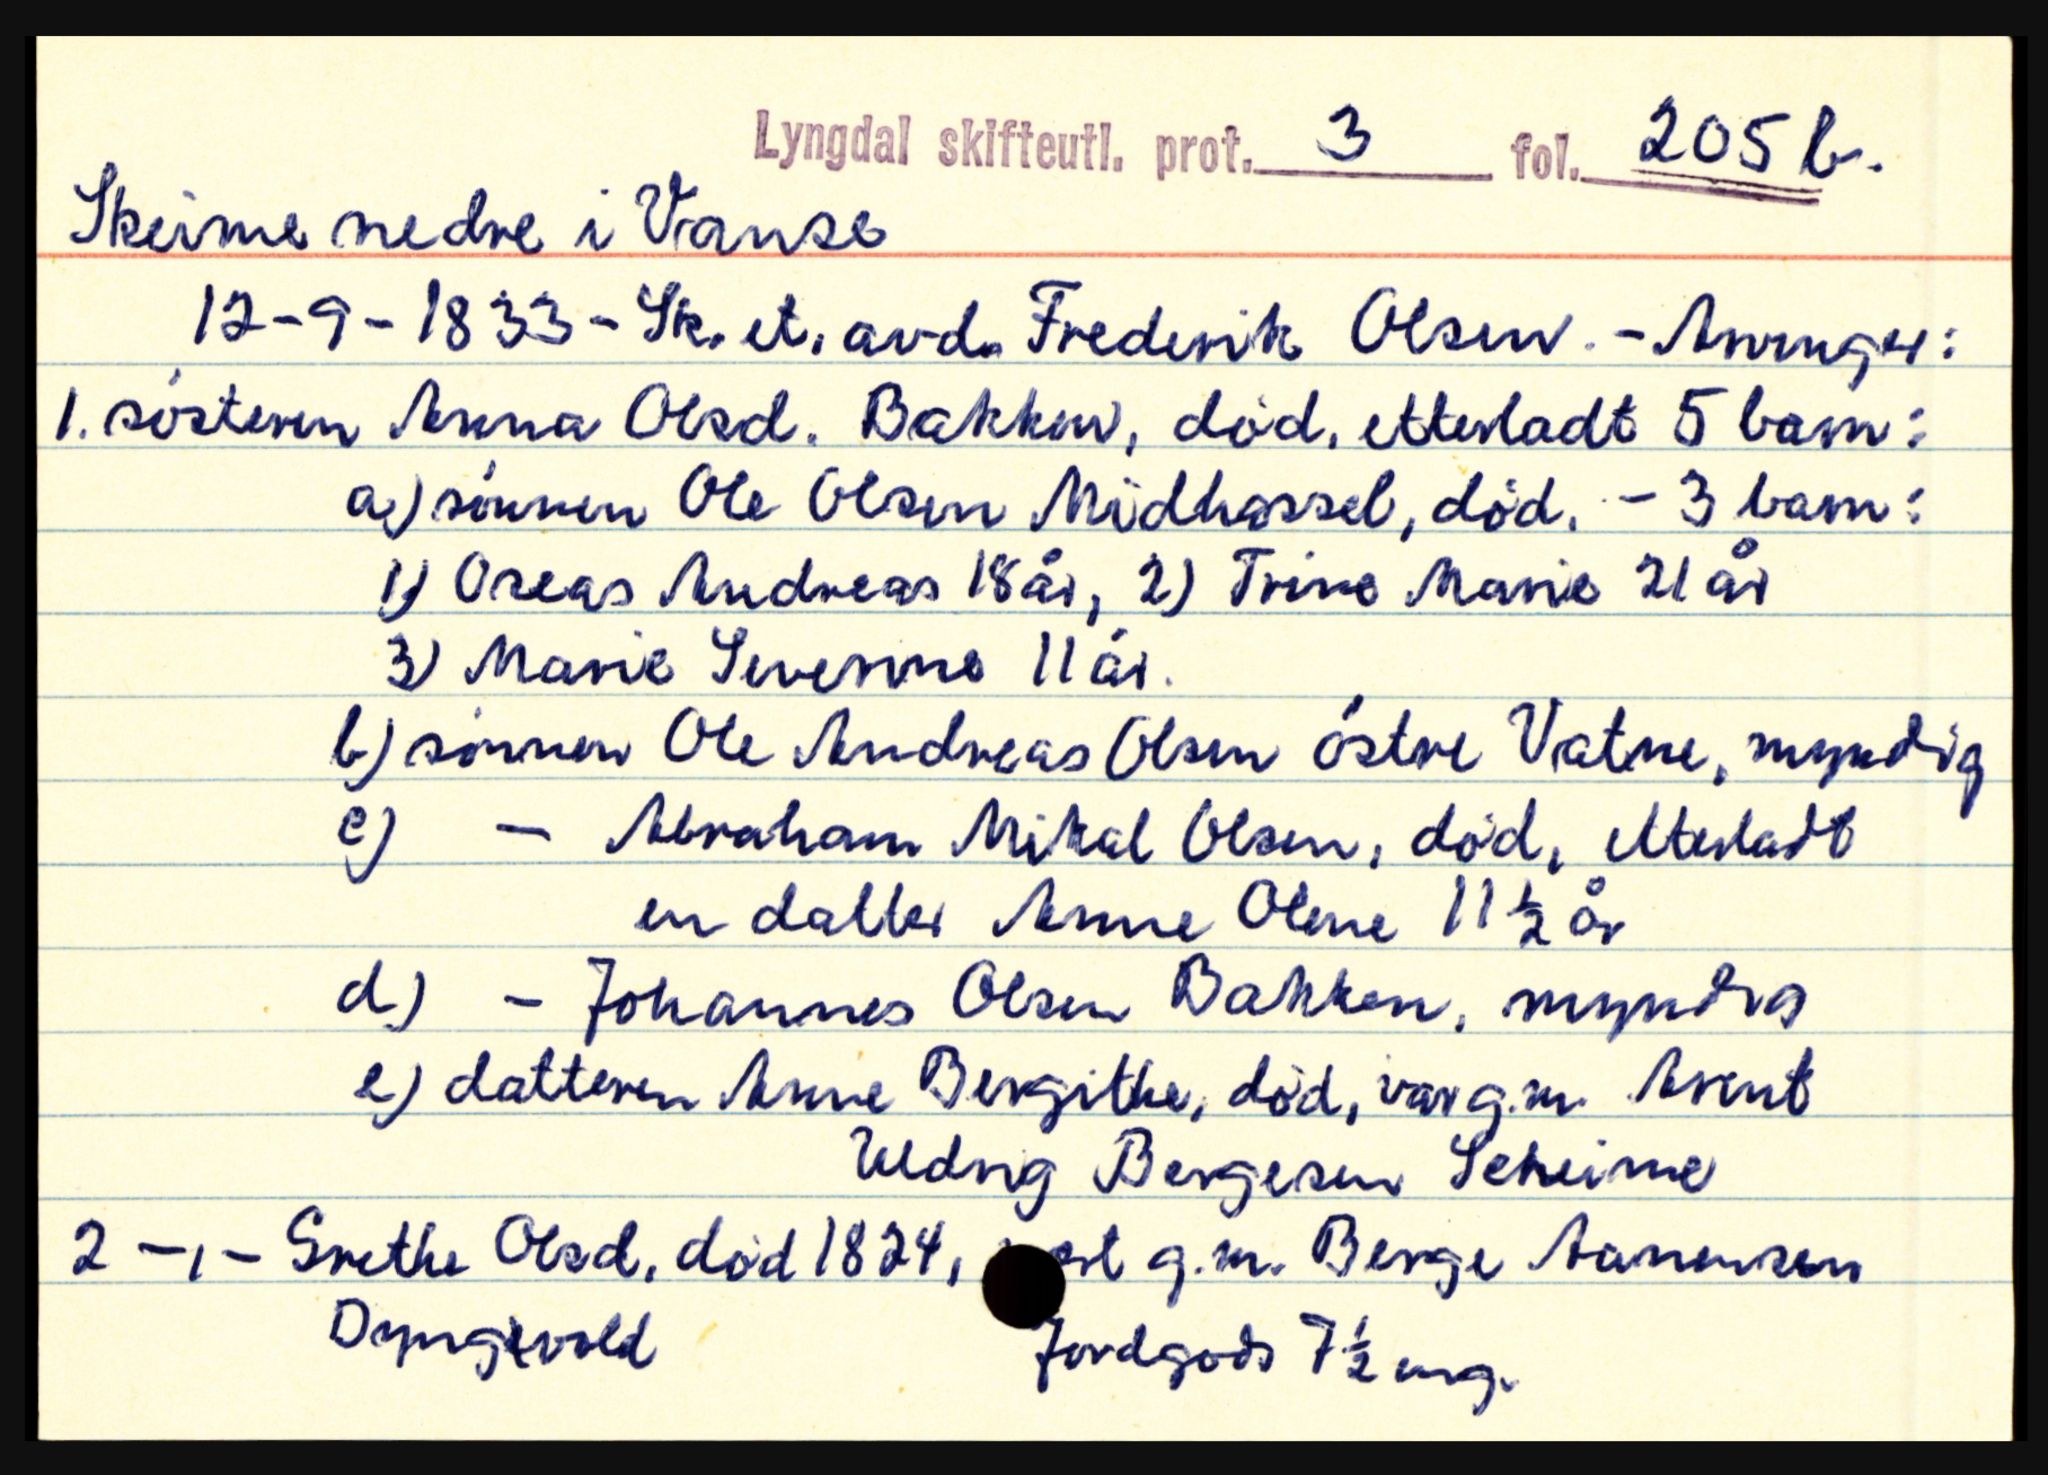 Lyngdal skifteutl. prot. 3 fol. 205 b.
Skeime nedre i Vanse
12-9-1833 - Sk. et. avd. Frederik Olsen. - Arvinger:
1. søsteren Anna Olsd. Bakken, død, etterladt 5 barn:
a) sønnen Ole Olsen Midhassel, død. - 3 barn:
1) Oseas Andreas 18 år, 2) Trine Marie 21 år
3) Marie Severine 11 år.
b) sønnen Ole Andreas Olsen østre Vatne, myndig
c) - Abraham Mikal Olsen, død, etterladt
en datter Anne Olene 11 1/2 år
d) - Johannes Olsen Bakken, myndig
e) datteren Anne Bergithe, død, var g.m. Arent
Uldrig Bergesen Scheime
2 -,- Grethe Olsd, død 1824, g.m. Berge Aanensen
Dyngvold Jordgods 7 1/2 mg.